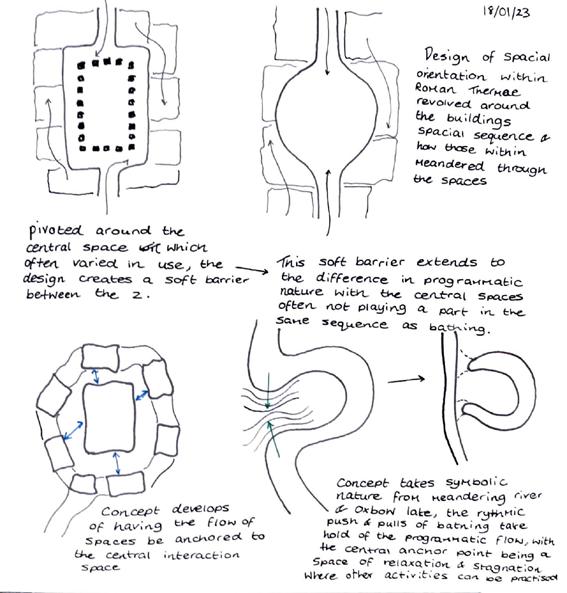 18/01/23
Design of spacial
orientation within
Roman Thermae
revolved around
the buildings
spacial sequence &
how those within
meandered through
the spaces
pivoted around the
central space which
often varied in use, the
design creates a soft barrier
between the 2.
This soft barrier extends to
the difference in programmatic
nature with the central spaces
often not playing a part in the
same sequence as bathing.
Concept develops
of having the flow of
spaces be anchored to
the central interaction
space
Concept takes symbolic
nature from meandering river
& oxbow late, the rythmic
push & pulls of bathing take
hold of the programmatic flow, with
the central anchor point being a
space of relaxation & stagnation
where other activities can be practised